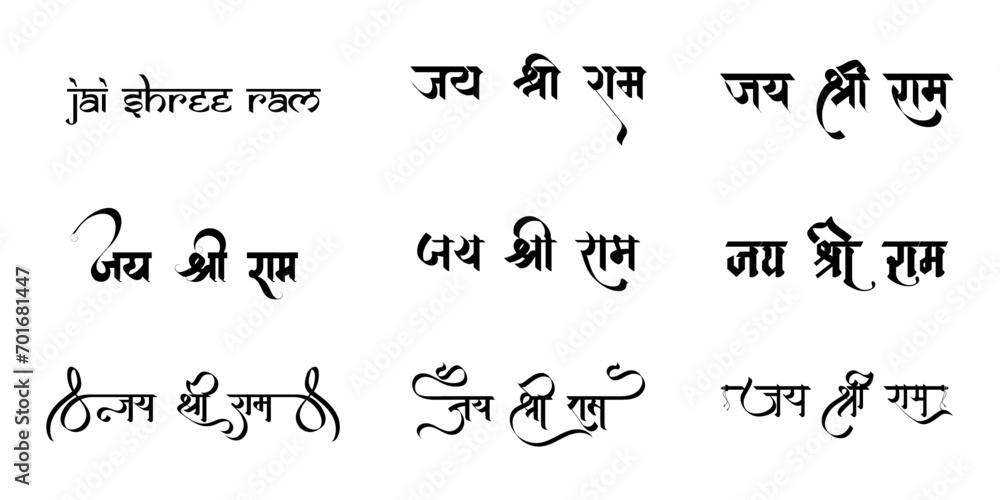 jai shree ram
जय श्री राम
जय श्री राम
जय श्री राम
जय श्री राम
जय श्री राम
जय श्री राम
जय श्री राम
जय श्री राम
Adobe Stock | #701681447